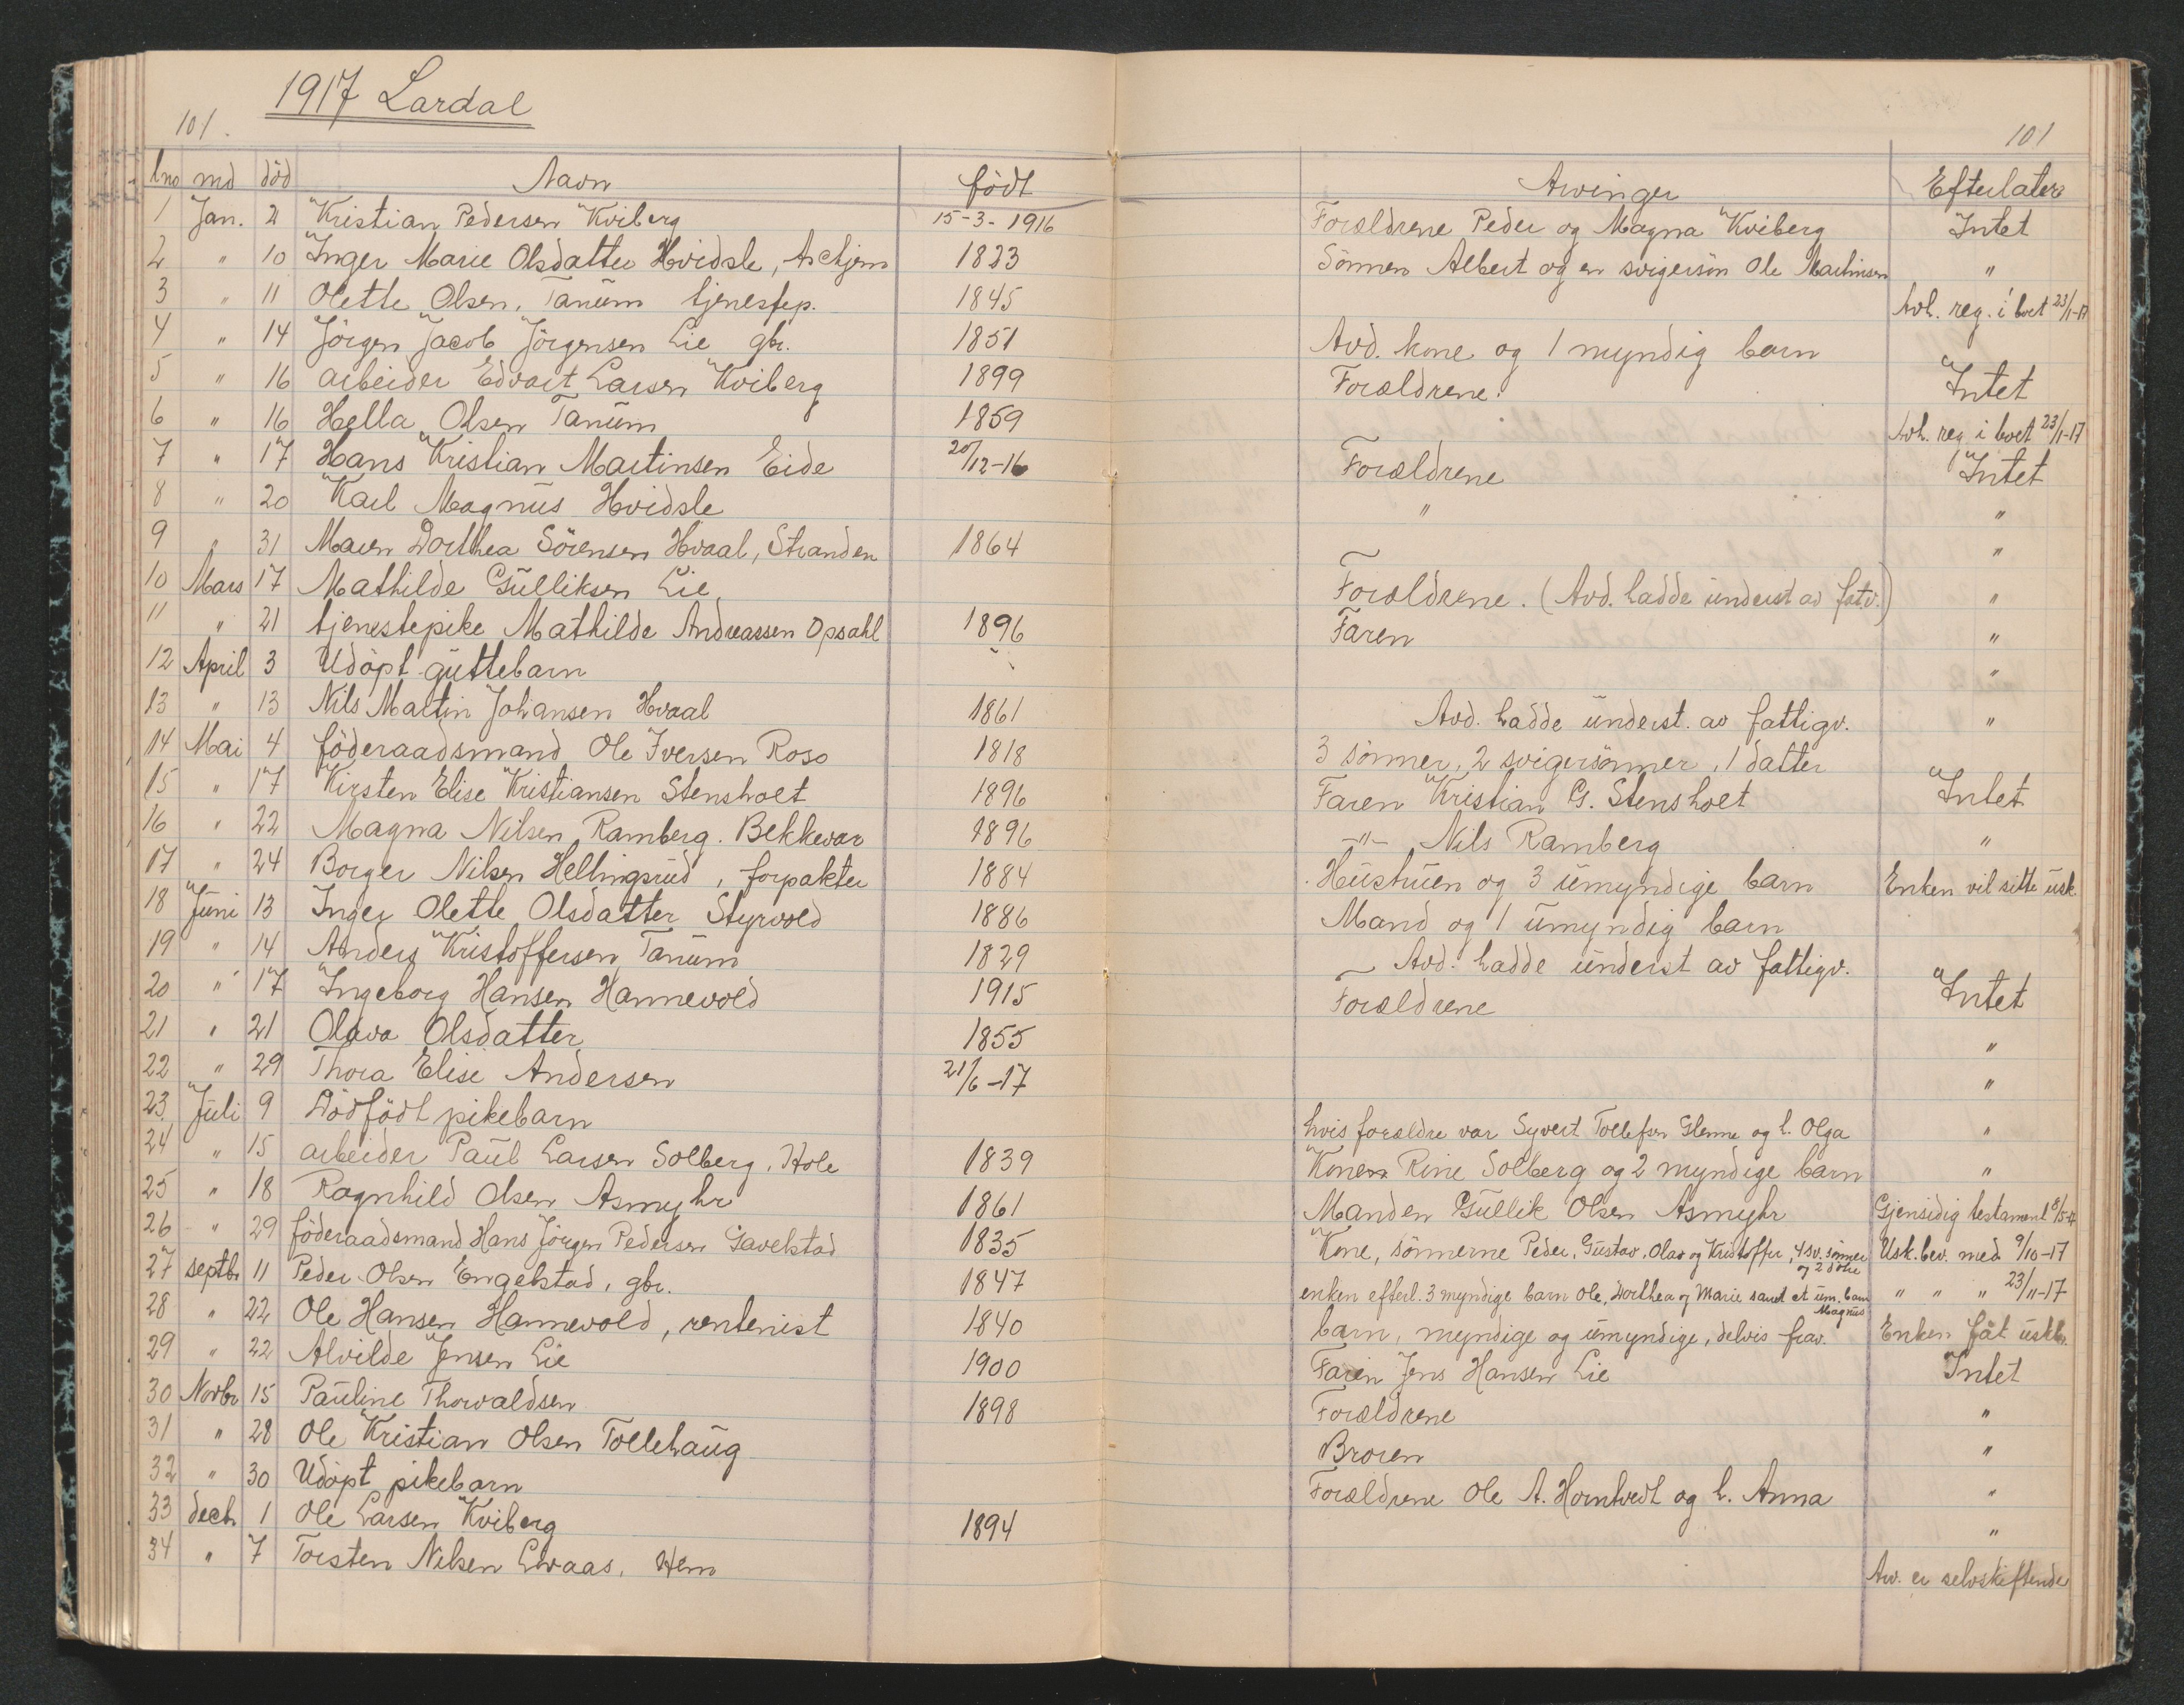 1917 Lardal
101.
101
lno md död Navn födt Arvinger Efterlater
1 Jan. 2 Kristian Pedersen Kviberg 15-3-1916 Forældrene Peder og Magna Kviberg Intet
2 " 10 Inger Marie Olsdatter Hvidsle, Askjem 1823 Sönnen Albert og en svigersön Ole Martinsen "
3 " 11 Olette Olsen, Tanum tjenestep. 1845 Avh. reg. i boet 23/1-17
4 " 14 Jörgen Jacob Jörgensen Lie gbr. 1851 Avd. kone og 1 myndig barn
5 " 16 arbeider Edvart Larsen Kviberg 1899 Forældrene. Intet
6 " 16 Hella Olsen Tanum 1859 Avh. reg i boet 23/1-17
7 " 17 Hans Kristian Martinsen Eide 20/12-16 Forældrene Intet
8 " 20 Karl Magnus Hvidsle " "
9 " 31 Maren Dorthea Sörensen Hvaal, Stranden 1864 "
10 Mars 17 Mathilde Gulliksen Lie Forældrene. (Avd. hadde underst av fatv.) "
11 " 21 tjenestepike Mathilde Andreassen Opsahl 1896 Faren "
12 April 3 Udöpt guttebarn "
13 " 13 Nils Martin Johansen Hvaal 1861 Avd. hadde underst. av fattigv. "
14 Mai 4 föderaadsmand Ole Iversen Roso 1818 3 sönner, 2 svigersönner, 1 datter
15 " 17 Kirsten Elise Kristiansen Stensholt 1896 Faren Kristian G. Stensholt Intet
16 " 22 Magna Nilsen Ramberg. Bekkevar 1896 -"- Nils Ramberg "
17 " 24 Borger Nilsen Hellingsrud, forpakter 1884 Hustruen og 3 umyndige barn Enken vil sitte usk.
18 Juni 13 Inger Olette Olsdatter Styrvold 1886 Mand og 1 umyndig barn
19 " 14 Anders Kristoffersen Tanum 1829 Avd. hadde underst av fattigv.
20 " 17 Ingeborg Hansen Hannevold 1915 Forældrene Intet
21 " 21 Olava Olsdatter 1855 "
22 " 29 Thora Elise Andersen 21/6-17 "
23 Juli 9 Dödfödt pikebarn hvis forældre var Syvert Tollefsen Glenne og h. Olga "
24 " 15 arbeider Paul Larsen Solberg, Hole 1839 Konen Rine Solberg og 2 myndige barn "
25 " 18 Ragnhild Olsen Asmyhr 1861 Manden Gullik Olsen Asmyhr Gjensidig testament
26 " 29 föderaadsmand Hans Jörgen Pedersen Gavelstad 1835 Kone, sönnerne Peder, Gustav, Olav og Kristoffer, 4 sv. sönner og 2 dötre Usk. bev. med 9/10-17
27 septbr 11 Peder Olsen Engelstad, gbr. 1847 enken efterl. 3 myndige barn Ole, Dorthea og Marie samt et um. barn Magnus " " " 23/11-17
28 " 22 Ole Hansen Hannevold, rentenist 1840 barn, myndige og umyndige, delvis frav. Enken fåt uskb.
29 " 22 Alvilde Jensen Lie 1900 Faren Jens Hansen Lie Intet
30 Novbr 15 Pauline Thorvaldsen 1898 Forældrene "
31 " 28 Ole Kristian Olsen Tollehaug Broren "
32 " 30 Udöpt pikebarn Forældrene Ole A. Horntvedt og h. Anna "
33 decbr 1 Ole Larsen Kviberg 1894 "
34 " 7 Torsten Nilsen Livaas, Hem Arv. er selvskiftende